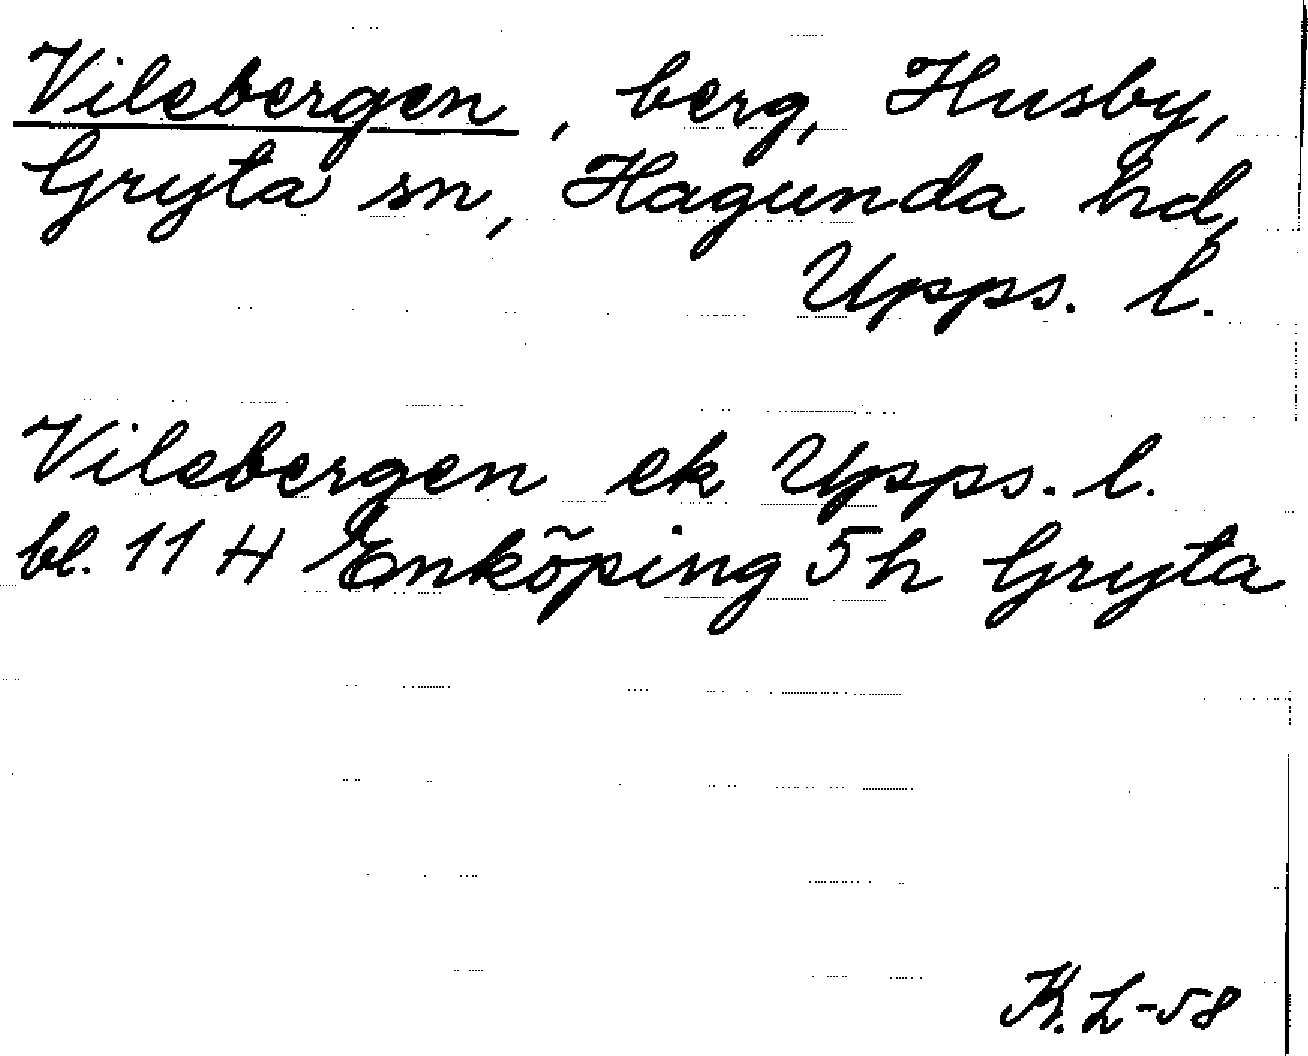 Vilsbergen, berg, Husby,
Gryta sn, Hagunda hd,
Upps. l.
Vilsbergen ek Upps. l.
bl. 11 H Enköping 5h Gryta
K. L-58